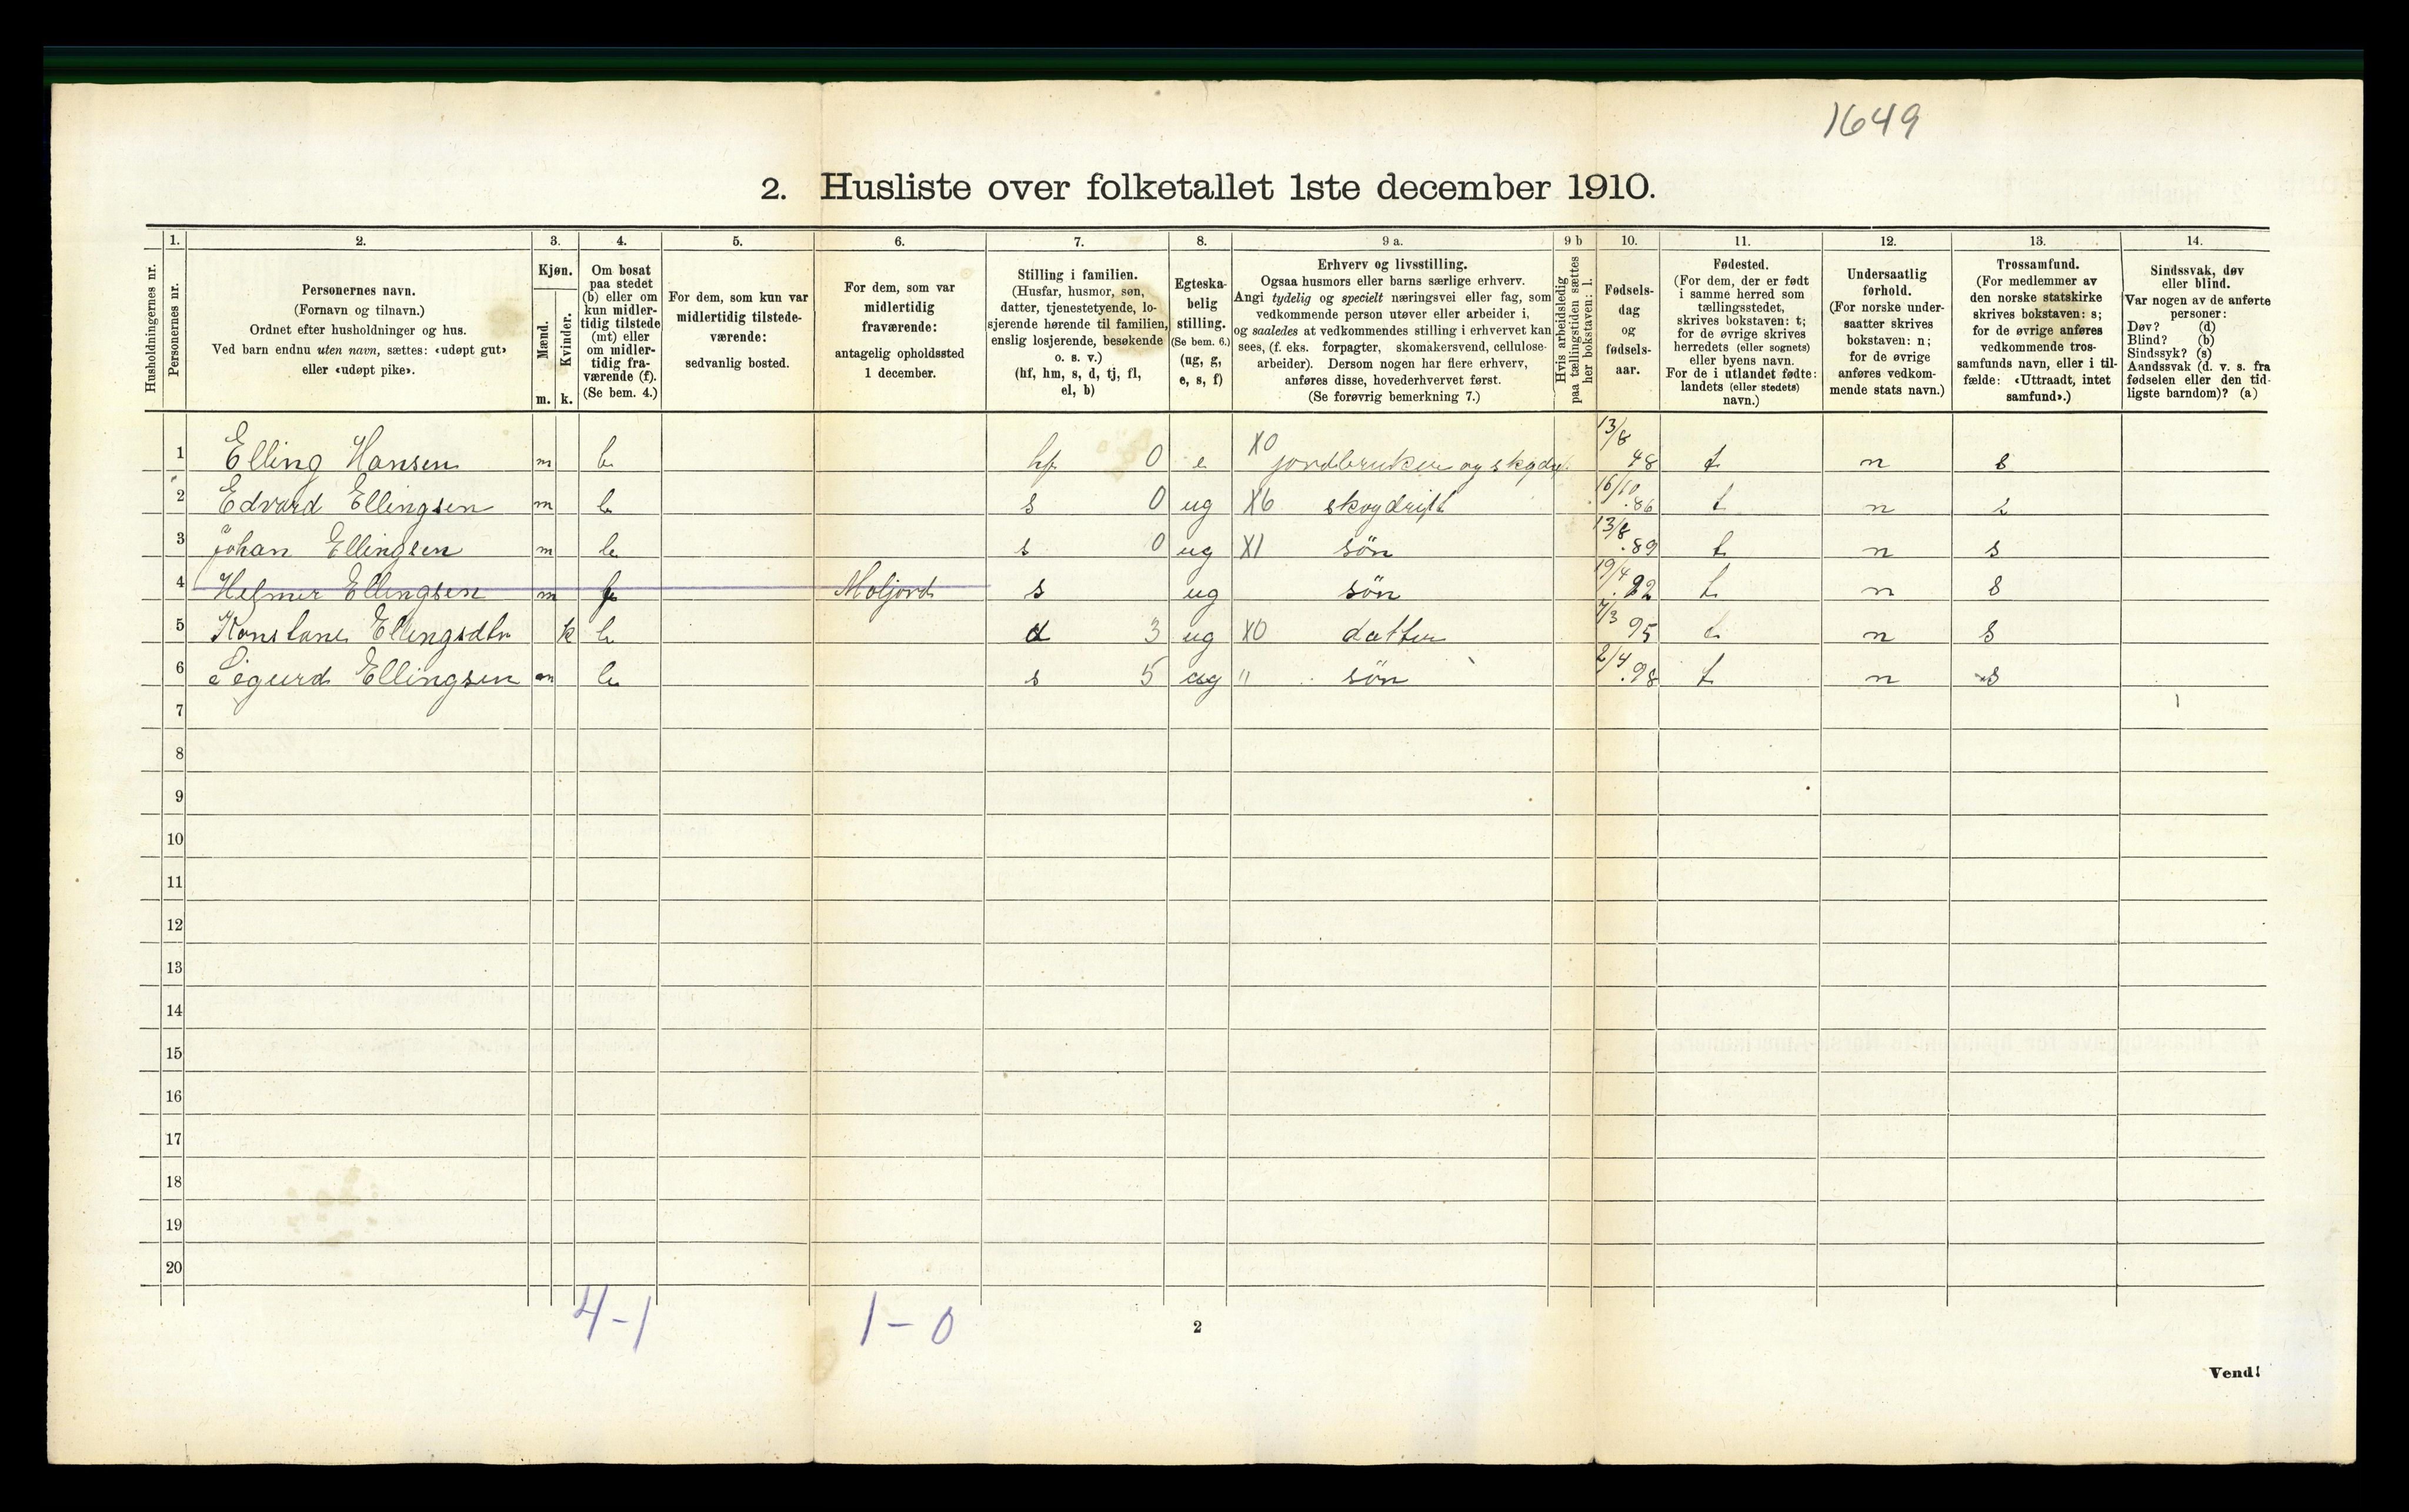 1649
2. Husliste over folketallet 1ste december 1910.
Husholdningernes nr.
1.
Personernes nr.
2.
Personernes navn.
(Fornavn og tilnavn.)
Ordnet efter husholdninger og hus.
Ved barn endnu uten navn, sættes: «udøpt gut»
eller «udøpt pike».
3.
Kjøn.
Mænd.
Kvinder.
m. k.
4.
Om bosat
paa stedet
(b) eller om
kun midler-
tidig tilstede
(mt) eller
om midler-
tidig fra-
værende (f).
(Se bem. 4.)
5.
For dem, som kun var
midlertidig tilstede-
værende:
sedvanlig bosted.
6.
For dem, som var
midlertidig
fraværende:
antagelig opholdssted
1 december.
7.
Stilling i familien.
(Husfar, husmor, søn,
datter, tjenestetyende, lo-
sjerende hørende til familien,
enslig losjerende, besøkende
o. s. v.)
(hf, hm, s, d, tj, fl,
el, b)
8.
Egteska-
belig
stilling.
(Se bem. 6.)
(ug, g,
e, s, f)
9 a.
Erhverv og livsstilling.
Ogsaa husmors eller barns særlige erhverv.
Angi tydelig og specielt næringsvei eller fag, som
vedkommende person utøver eller arbeider i,
og saaledes at vedkommendes stilling i erhvervet kan
sees, (f. eks. forpagter, skomakersvend, cellulose-
arbeider). Dersom nogen har flere erhverv,
anføres disse, hovederhvervet først.
(Se forøvrig bemerkning 7.)
9 b
Hvis arbeidsledig
paa tællingstiden sættes
her bokstaven: l.
10.
Fødsels-
dag
og
fødsels-
aar.
11.
Fødested.
(For dem, der er født
i samme herred som
tællingsstedet,
skrives bokstaven: t;
for de øvrige skrives
herredets (eller sognets)
eller byens navn.
For de i utlandet fødte:
landets (eller stedets)
navn.)
12.
Undersaatlig
forhold.
(For norske under-
saatter skrives
bokstaven: n;
for de øvrige
anføres vedkom-
mende stats navn.)
13.
Trossamfund.
(For medlemmer av
den norske statskirke
skrives bokstaven: s;
for de øvrige anføres
vedkommende tros-
samfunds navn, eller i til-
fælde: «Uttraadt, intet
samfund».)
14.
Sindssvak, døv
eller blind.
Var nogen av de anførte
personer:
Døv? (d)
Blind? (b)
Sindssyk? (s)
Aandssvak (d. v. s. fra
fødselen eller den tid-
ligste barndom)? (a)
1 Elling Hansen m b hf 0 e X0 jordbruker og 13/8 48 t n s
2 Edvard Ellingsen m b s 0 ug X6 skogdrift 16/10 86 t n s
3 Johan Ellingsen m b s 0 ug X1 sön 13/8 89 t n s
4 Helmer Ellingsen m f Moljord s ug sön 19/4 92 t n s
5 Ellingsdtr k b d 3 ug X0 datter 7/3 95 t n s
6 Sigurd Ellingsen m b s 5 ug " sön 2/4 98 t n s
7
8
9
10
11
12
13
14
15
16
17
18
19
20
4-1
1-0
2
Vend!